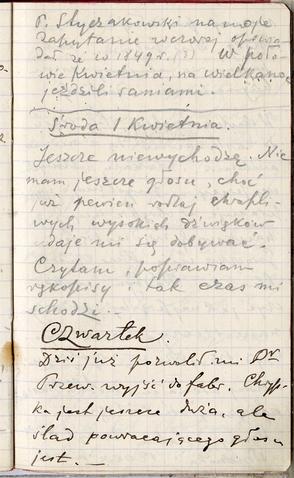 P. Styczakowski na moje
zapytanie wczoraj opowia-
dał że w 1849 r. (?) w poło-
wie Kwietnia, na wielkanoc
jeździli saniami.
Środa 1 Kwietnia.
Jeszcze niewychodzę. Nie
mam jeszcze głosu, choć
już pewien rodzaj chrapli-
wych wysokich dźwięków
udaje mi się dobywać.
Czytam, poprawiam
rękopisy i tak czas mi
schodzi. —
Czwartek.
Dziś już pozwolił mi Dr
Przew. wyjść do fabr. Chryp-
ka jest jeszcze duża, ale
ślad powracającego głosu
jest. —